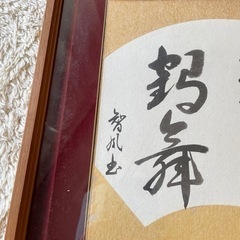 鶴舞
智風書